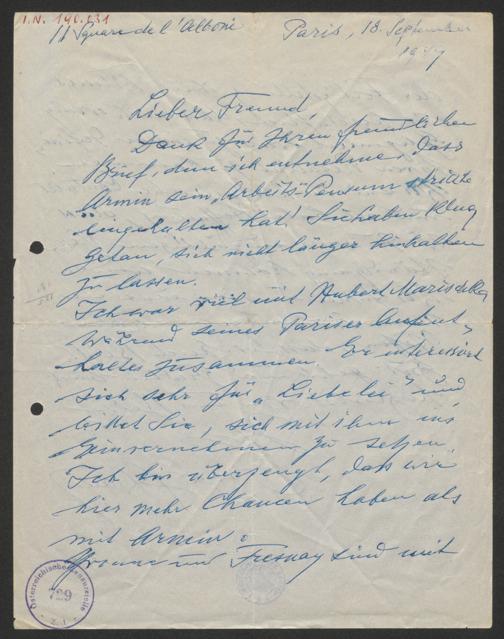 I.N. 190.231
11 Square de l'Alboni Paris, 18. September
1947
Lieber Freund,
Dank für Ihren freundlichen
Brief, dem ich entnehme, dass
Armin sein "Arbeits-Pensum" strikte
eingehalten hat! Sie haben klug
getan, sich nicht länger hinhalten
zu lassen.
Ich war viel mit Hubert Marischka
während seines Pariser Aufent-
haltes zusammen. Er interessiert
sich sehr für "Liebelei" und
bittet Sie, sich mit ihm ins
Einvernehmen zu setzen.
Ich bin überzeugt, dass wir
hier mehr Chancen haben als
mit Armin.
Yvonne und Fresnay sind mit
Österreichische
729